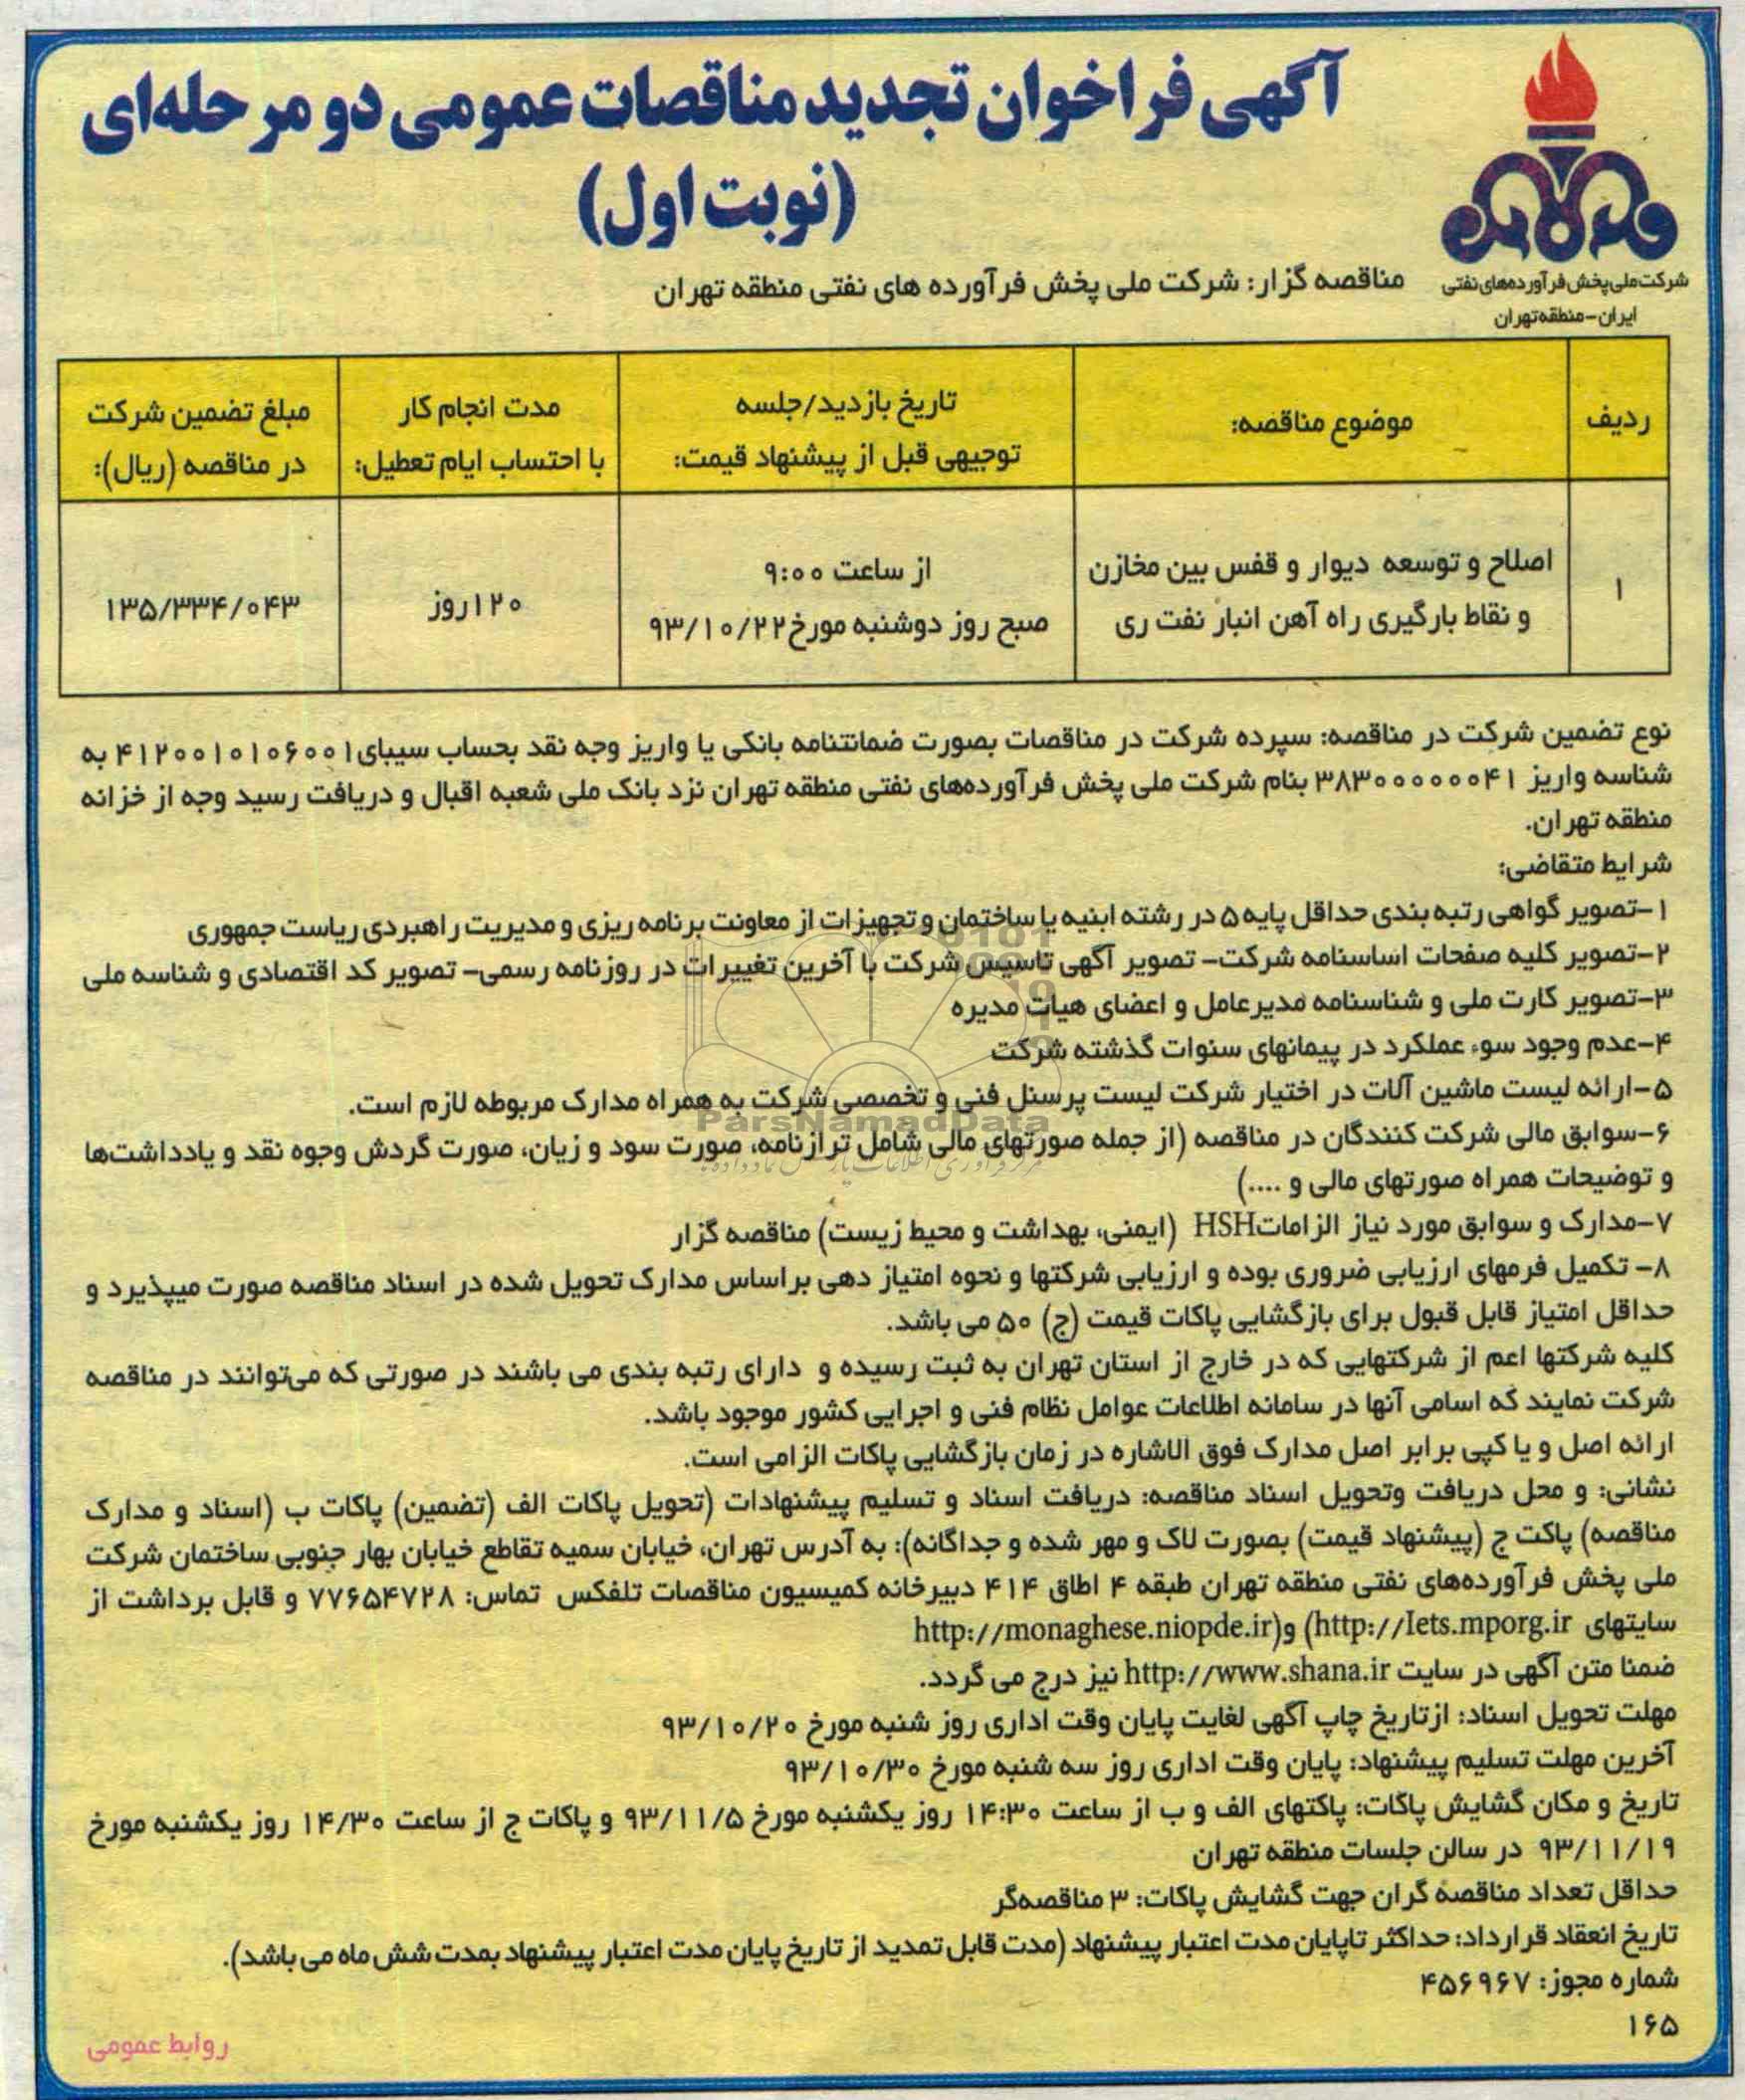 آگهی فراخوان تجدید مناقصات عمومی دو مرحله‌ای
(نوبت اول)
شرکت ملی پخش فرآورده‌های نفتی
ایران-منطقه تهران
مناقصه گزار: شرکت ملی پخش فرآورده های نفتی منطقه تهران
ردیف
موضوع مناقصه:
تاریخ بازدید/جلسه
توجیهی قبل از پیشنهاد قیمت:
مدت انجام کار
با احتساب ایام تعطیل:
مبلغ تضمین شرکت
در مناقصه (ریال):
۱
اصلاح و توسعه دیوار و قفس بین مخازن
و نقاط بارگیری راه آهن انبار نفت ری
از ساعت ۹:۰۰
صبح روز دوشنبه مورخ ۹۳/۱۰/۲۲
۱۲۰ روز
۱۳۵/۳۳۴/۰۴۳
نوع تضمین شرکت در مناقصه: سپرده شرکت در مناقصات بصورت ضمانتنامه بانکی یا واریز وجه نقد بحساب سیبای ۴۱۲۰۰۱۰۱۰۶۰۰۱ به
شناسه واریز ۳۸۳۰۰۰۰۰۰۴۱ بنام شرکت ملی پخش فرآورده‌های نفتی منطقه تهران نزد بانک ملی شعبه اقبال و دریافت رسید وجه از خزانه
منطقه تهران.
شرایط متقاضی:
۱-تصویر گواهی رتبه بندی حداقل پایه ۵ در رشته ابنیه یا ساختمان و تجهیزات از معاونت برنامه ریزی و مدیریت راهبردی ریاست جمهوری
۲-تصویر کلیه صفحات اساسنامه شرکت- تصویر آگهی تاسیس شرکت با آخرین تغییرات در روزنامه رسمی- تصویر کد اقتصادی و شناسه ملی
۳-تصویر کارت ملی و شناسنامه مدیرعامل و اعضای هیات مدیره
۴-عدم وجود سوء عملکرد در پیمانهای سنوات گذشته شرکت
۵-ارائه لیست ماشین آلات در اختیار شرکت لیست پرسنل فنی و تخصصی شرکت به همراه مدارک مربوطه لازم است.
ParsNamadData
۶-سوابق مالی شرکت کنندگان در مناقصه (از جمله صورتهای مالی شامل ترازنامه، صورت سود و زیان، صورت گردش وجوه نقد و یادداشت‌ها
و توضیحات همراه صورتهای مالی و ....)
۷-مدارک و سوابق مورد نیاز الزامات HSH (ایمنی، بهداشت و محیط زیست) مناقصه گزار
۸- تکمیل فرمهای ارزیابی ضروری بوده و ارزیابی شرکتها و نحوه امتیاز دهی براساس مدارک تحویل شده در اسناد مناقصه صورت میپذیرد و
حداقل امتیاز قابل قبول برای بازگشایی پاکات قیمت (ج) ۵۰ می باشد.
کلیه شرکتها اعم از شرکتهایی که در خارج از استان تهران به ثبت رسیده و دارای رتبه بندی می باشند در صورتی که می‌توانند در مناقصه
شرکت نمایند که اسامی آنها در سامانه اطلاعات عوامل نظام فنی و اجرایی کشور موجود باشد.
ارائه اصل و یا کپی برابر اصل مدارک فوق الاشاره در زمان بازگشایی پاکات الزامی است.
نشانی: و محل دریافت وتحویل اسناد مناقصه: دریافت اسناد و تسلیم پیشنهادات (تحویل پاکات الف (تضمین) پاکات ب (اسناد و مدارک
مناقصه) پاکت ج (پیشنهاد قیمت) بصورت لاک و مهر شده و جداگانه): به آدرس تهران، خیابان سمیه تقاطع خیابان بهار جنوبی ساختمان شرکت
ملی پخش فرآورده‌های نفتی منطقه تهران طبقه ۴ اطاق ۴۱۴ دبیرخانه کمیسیون مناقصات تلفکس تماس: ۷۷۶۵۴۷۲۸ و قابل برداشت از
سایتهای http://Iets.mporg.ir) و(http://monaghese.niopde.ir
ضمنا متن آگهی در سایت http://www.shana.ir نیز درج می گردد.
مهلت تحویل اسناد: ازتاریخ چاپ آگهی لغایت پایان وقت اداری روز شنبه مورخ ۹۳/۱۰/۲۰
آخرین مهلت تسلیم پیشنهاد: پایان وقت اداری روز سه شنبه مورخ ۹۳/۱۰/۳۰
تاریخ و مکان گشایش پاکات: پاکتهای الف و ب از ساعت ۱۴:۳۰ روز یکشنبه مورخ ۹۳/۱۱/۵ و پاکات ج از ساعت ۱۴/۳۰ روز یکشنبه مورخ
۹۳/۱۱/۱۹ در سالن جلسات منطقه تهران
حداقل تعداد مناقصه گران جهت گشایش پاکات: ۳ مناقصه‌گر
تاریخ انعقاد قرارداد: حداکثر تاپایان مدت اعتبار پیشنهاد (مدت قابل تمدید از تاریخ پایان مدت اعتبار پیشنهاد بمدت شش ماه می باشد).
شماره مجوز: ۴۵۶۹۶۷
۱۶۵
روابط عمومی